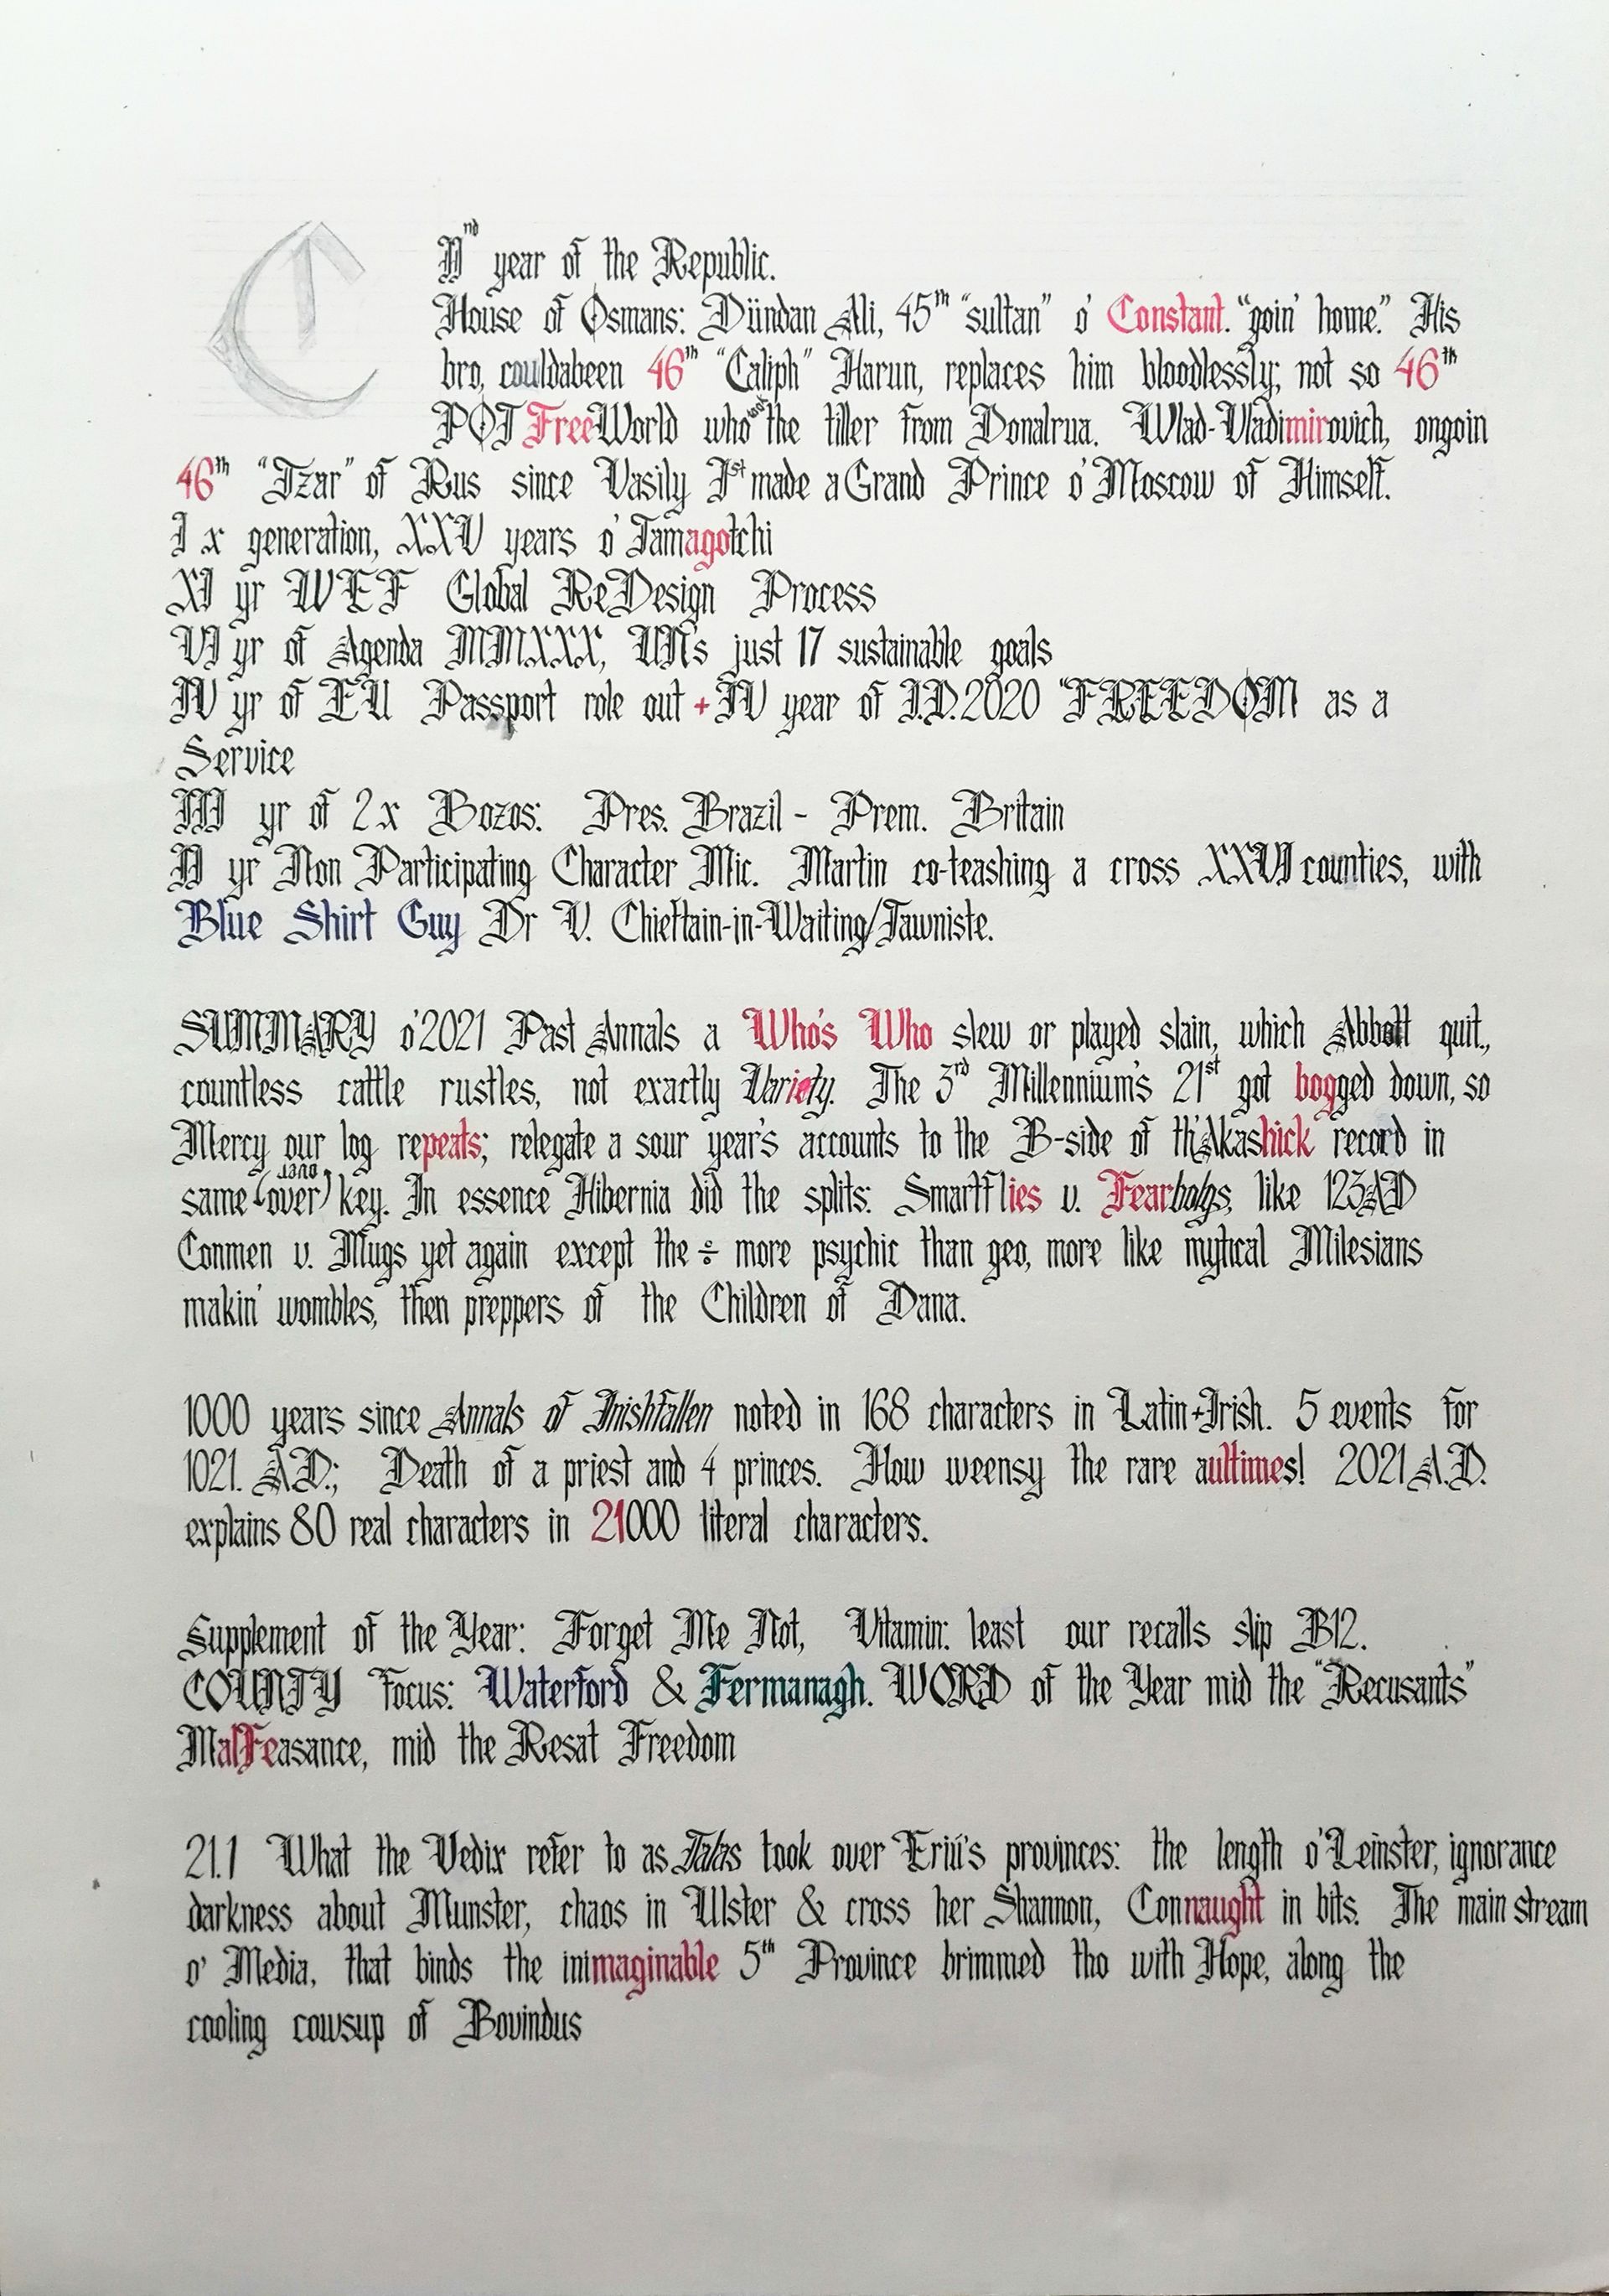 C IInd year of the Republic.
House of Osmans: Dündan Ali, 45th "sultan" o' Constant. "goin' home." His
bro, couldabeen 46th "Caliph" Harun, replaces him bloodlessly; not so 46th
POT FreeWorld who took the tiller from Donalrua. Wlad-Vladimirovich, ongoin
46th "Tzar" of Rus since Vasily Ist made a Grand Prince o' Moscow of Himself.
I x generation, XXV years o' Tamagotchi
XI yr WEF Global ReDesign Process
VI yr of Agenda MMXXX, UN's just 17 sustainable goals
IV yr of EU Passport role out + IV year of I.D.2020 "FREEDOM as a
Service
III yr of 2x Bozos: Pres. Brazil - Prem. Britain
II yr Non Participating Character Mic. Martin co-teashing a cross XXVI counties, with
Blue Shirt Guy Dr V. Chieftain-in-Waiting/Tawniste.
SUMMARY o'2021 Past Annals a Who's Who slew or played slain, which Abbott quit,
countless cattle rustles, not exactly Variety. The 3rd Millennium's 21st got bogged down, so
Mercy our log repeats; relegate a sour year's accounts to the B-side of th'Akashick record in
same (over) key. In essence Hibernia did the splits: Smartflies v. Fearbolgs, like 123AD
Conmen v. Mugs yet again except the ÷ more psychic than geo, more like mytical Milesians
makin' wombles, then preppers of the Children of Dana.
1000 years since Annals of Inishfallen noted in 168 characters in Latin+Irish. 5 events for
1021. AD.; Death of a priest and 4 princes. How weensy the rare aultimes! 2021 A.D.
explains 80 real characters in 21000 literal characters.
Supplement of the Year: Forget Me Not, Vitamin: least our recalls slip B12.
COUNTY Focus: Waterford & Fermanagh. WORD of the Year mid the "Recusants"
MalFeasance, mid the Resat Freedom
21.1 What the Vedix refer to as Talas took over Eriú's provinces: the length o' Leinster, ignorance
darkness about Munster, chaos in Ulster & cross her Shannon, Connaught in bits. The main stream
o' Media, that binds the inimaginable 5th Province brimmed tho with Hope, along the
cooling cowsup of Bovindus